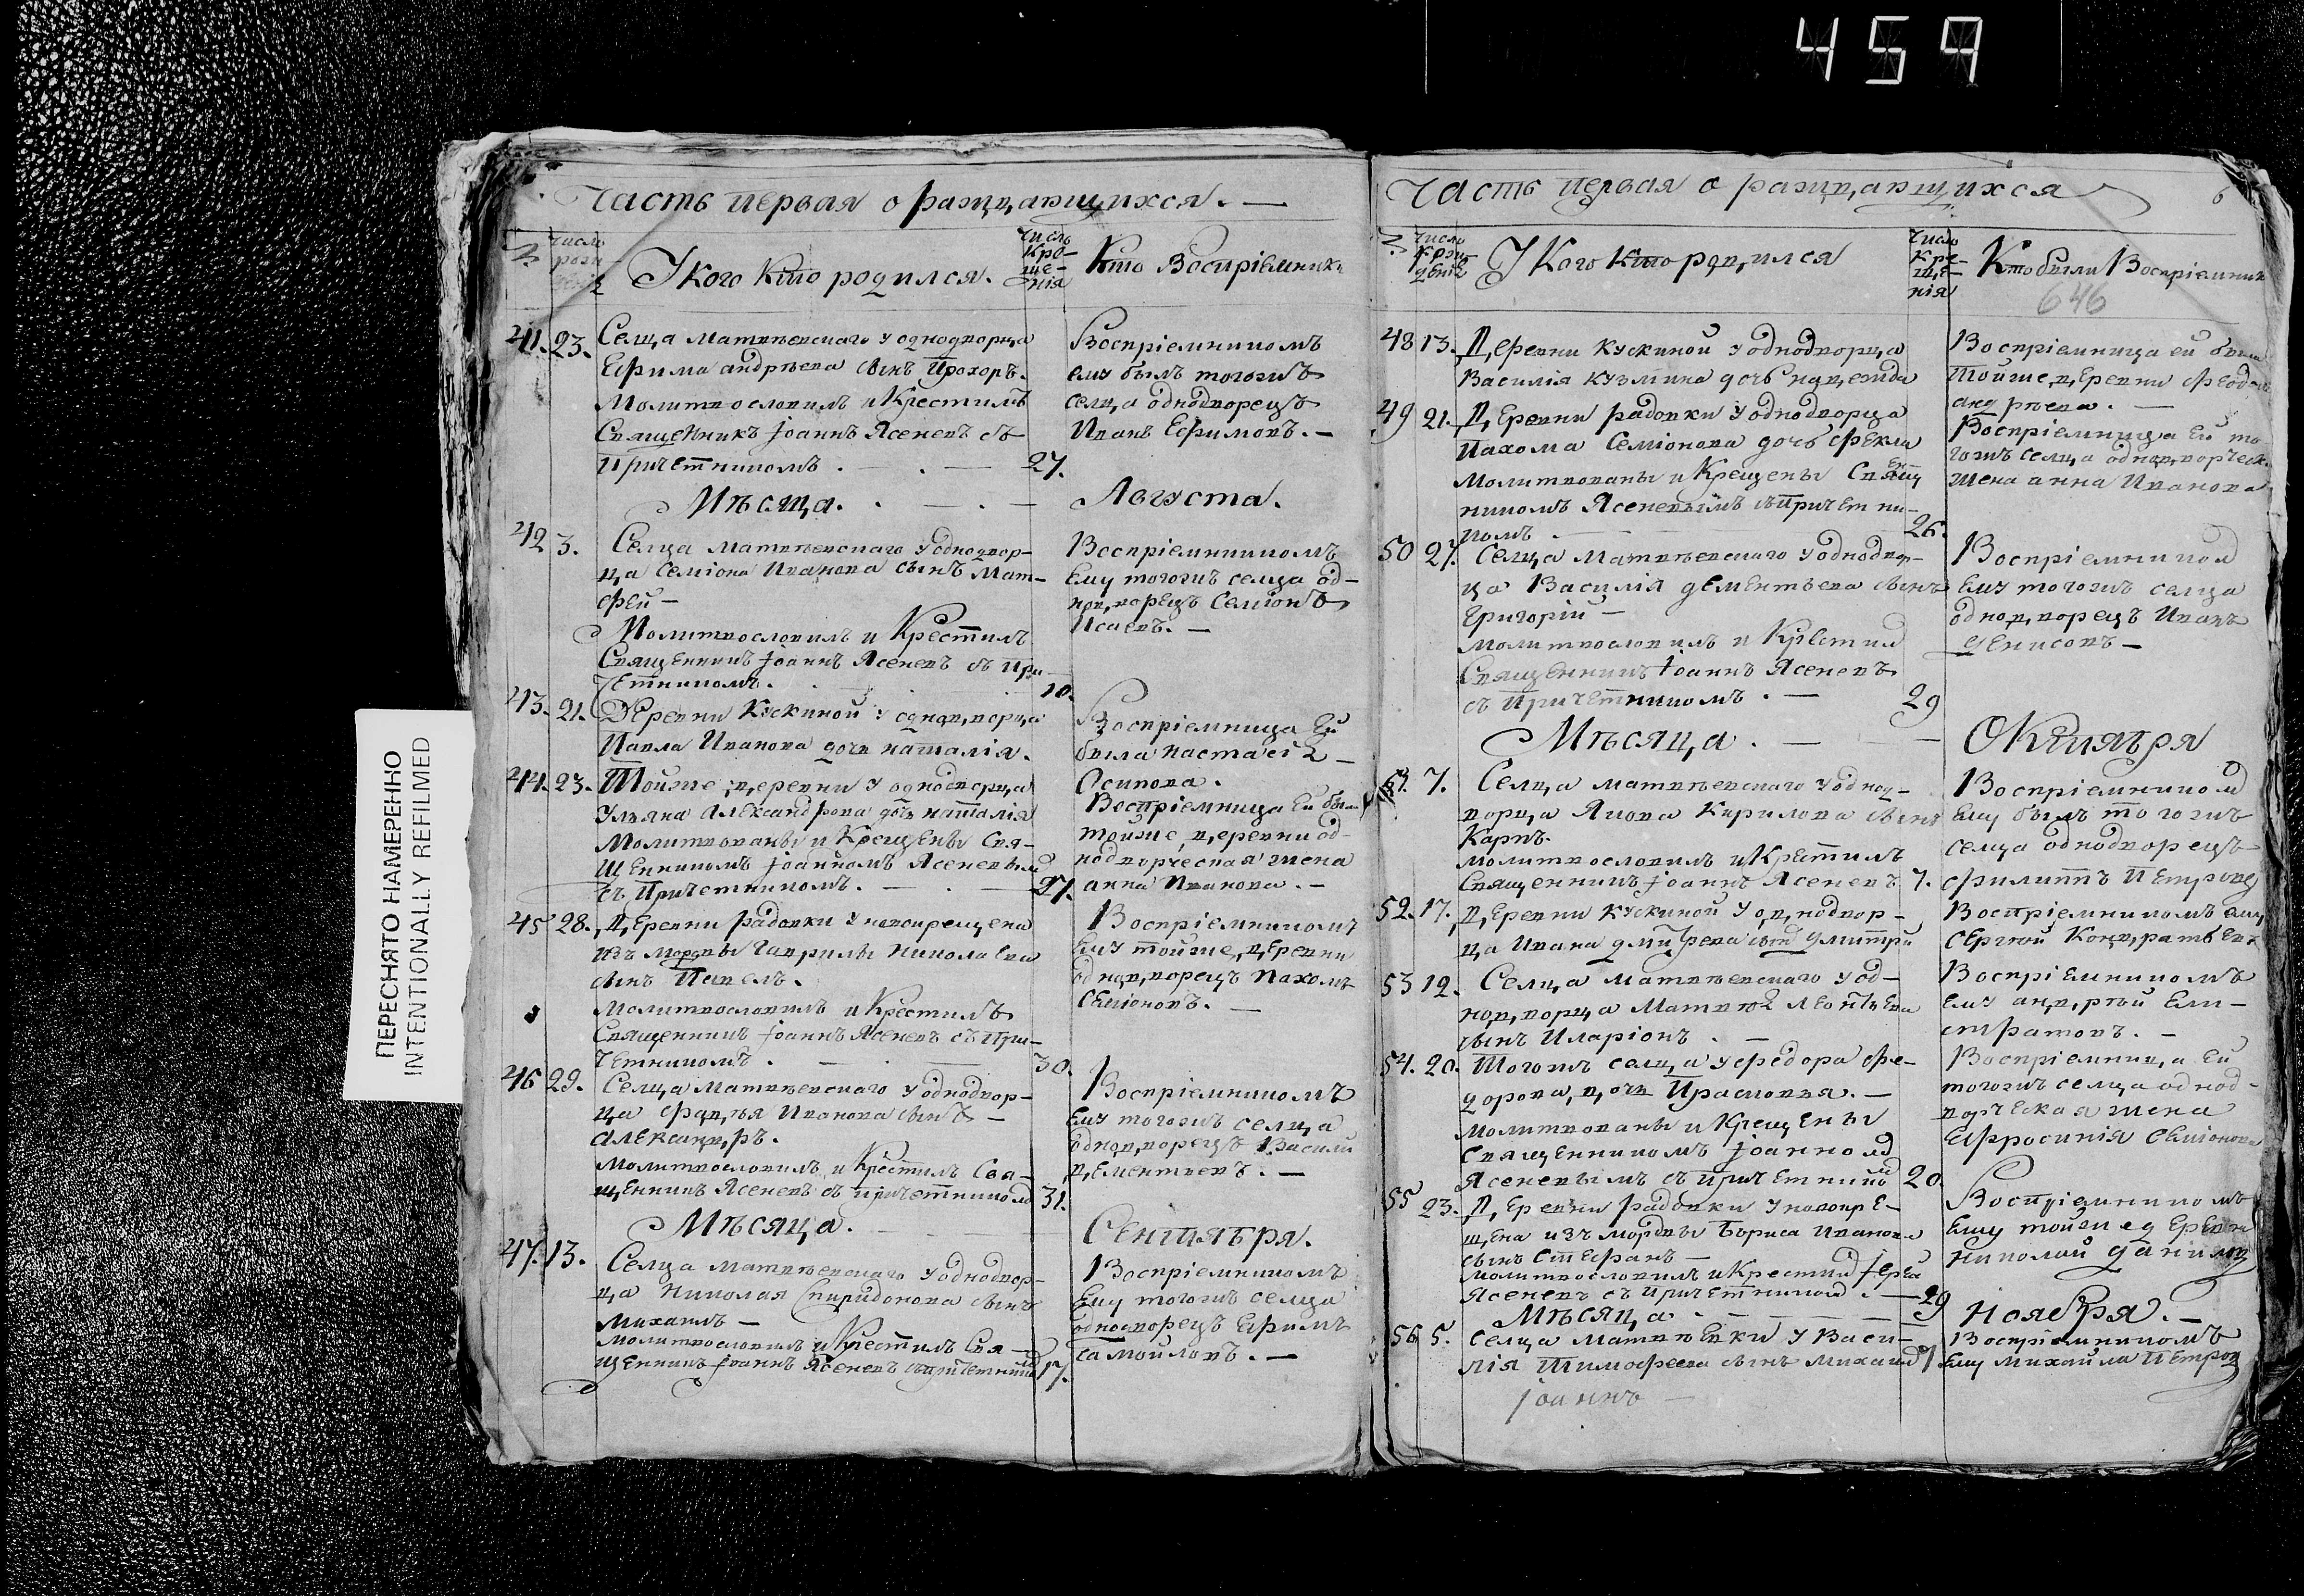 459
ПЕРЕСНЯТО НАМЕРЕННО
INTENTIONALLY REFILMED
Часть первая о раждающихся. —
№
Число рожденія
У кого кто родился.
Число
Кре-
ще-
нія
Кто Воспріемники
41. 23. Селца Матвѣевскаго у однодворца
Ефима андрѣева сынъ Прохоръ.
Молитвословилъ и Крестилъ
Священникъ Іоаннъ Ясеневъ съ
причетникомъ. — . — 27.
Воспріемникомъ
ему былъ тогожъ
селца однодворецъ
Иванъ Ефимовъ. —
Мѣсяца. . — . — Августа.
42 3. Селца Матвѣевскаго у однодвор-
ца Семіона Иванова сынъ Мат-
фей —
Молитвословилъ и Крестилъ
Священникъ Іоаннъ Ясеневъ съ при-
четникомъ. 10.
Воспріемникомъ
Ему тогожъ селца од-
нодворецъ Семіонъ
Исаевъ. —
43. 21. Деревни Кускиной у однодворца
Павла Иванова дочь наталія.
Воспріемница Ей
была настасія
Осипова.
44. 23. Тойже деревни у однодворца
Ульяна Александрова дочь наталія
Молитвованы и Крещены Свя-
щенникомъ Іоанномъ Ясеневымъ
съ Причетникомъ. — . — 27.
Воспріемница Ей была
тойже деревни од-
нодворческая жена
анна Иванова. —
45 28. Деревни радовки у новокрещена
изъ мордвы Гаврилы николаева
сынъ Павелъ.
Молитвословилъ и Крестилъ
Священникъ Іоаннъ Ясеневъ съ При-
четникомъ. — 30.
Воспріемникомъ
Ему тойже деревни
однодворецъ Пахомъ
Семіоновъ. —
46 29. Селца Матвѣевскаго у однодвор-
ца фадѣя Иванова сынъ —
александръ.
Молитвословилъ и Крестилъ Свя-
щенникъ Ясеневъ съ причетникомъ 31.
Воспріемникомъ
Ему тогожъ селца
однодворецъ Василій
Дементьевъ. —
Мѣсяца. Сентября.
47. 13. Селца Матвѣевскаго у однодвор-
ца Николая Спиридонова сынъ
Михаилъ —
Молитвословилъ и Крестилъ Свя-
щенникъ Іоаннъ Ясеневъ съ причетникомъ 17.
Воспріемникомъ
Ему тогожъ селца
однодворецъ Ефимъ
Самойловъ. —
Часть первая о раждающихся
6
№
Число
Рож-
денія
У Кого Кто родился
Число
Кре-
ще-
нія
Кто были Воспріемник
646
48 13. Деревни Кускиной у однодворца
Василія Кузмина дочь надежда
Воспріемница ей была
Тойже деревни
андрѣева. —
49 21. Деревни радовки у однодворца
Пахома Семіонова дочь Фекла
Молитвованы и Крещены Священ
никомъ Ясеневымъ съ причетни-
комъ — 26.
Воспріемница Ей то
гожъ селца однодворческ.
жена анна Иванова
50 27. Селца Матвѣевскаго у однодвор-
ца Василія дементьева сынъ
Григорій —
Молитвословилъ и Крестил
Священникъ Іоаннъ Ясеневъ
съ Причетникомъ. — 29
Воспріемником
Ему тогожъ селца
однодворецъ Иванъ
Денисовъ —
Мѣсяца. — Октября
51. 7. Селца матвѣевскаго у однод-
ворца Якова Кирилова сынъ
Карпъ.
Молитвословилъ и Крестилъ
Священникъ Іоаннъ Ясеневъ 7.
Воспріемником
Ему былъ тогожъ
селца однодворецъ
филиппъ Петровъ
52. 17. Деревни Кускиной у однодвор-
ца Ивана дмитрева сынъ Дмитрій
Воспріемникомъ ему
Сергѣй Кондратьевъ
53 19. Селца Матвѣевскаго у од-
нодворца Матвѣя Леонтьева
сынъ Иларіонъ. —
Воспріемникомъ
ему андрѣй Ели-
стратовъ. —
54. 20. Тогожъ селца у федора фе-
дорова дочь Прасковья. —
Молитвованы и Крещены
Священникомъ Іоанном
Ясеневымъ съ причетником 20
Воспріемница Ей
тогожъ селца однод-
ворческая жена
Ефросинія Семіонова
55 23. Деревни радовки у новокре-
щена изъ мордвы Бориса Иванова
сынъ Стефанъ —
Молитвословилъ и Крестил Іерей
Ясеневъ съ причетником. — 29
Воспріемникомъ
Ему тойже деревни
Николай данилов
Мѣсяца. — Ноября. —
56 5. Селца Матвѣевки у Васи-
лія Тимофеева сынъ Михаил 7.
Воспріемникомъ
Ему Михайла Петров
Іоаннъ —